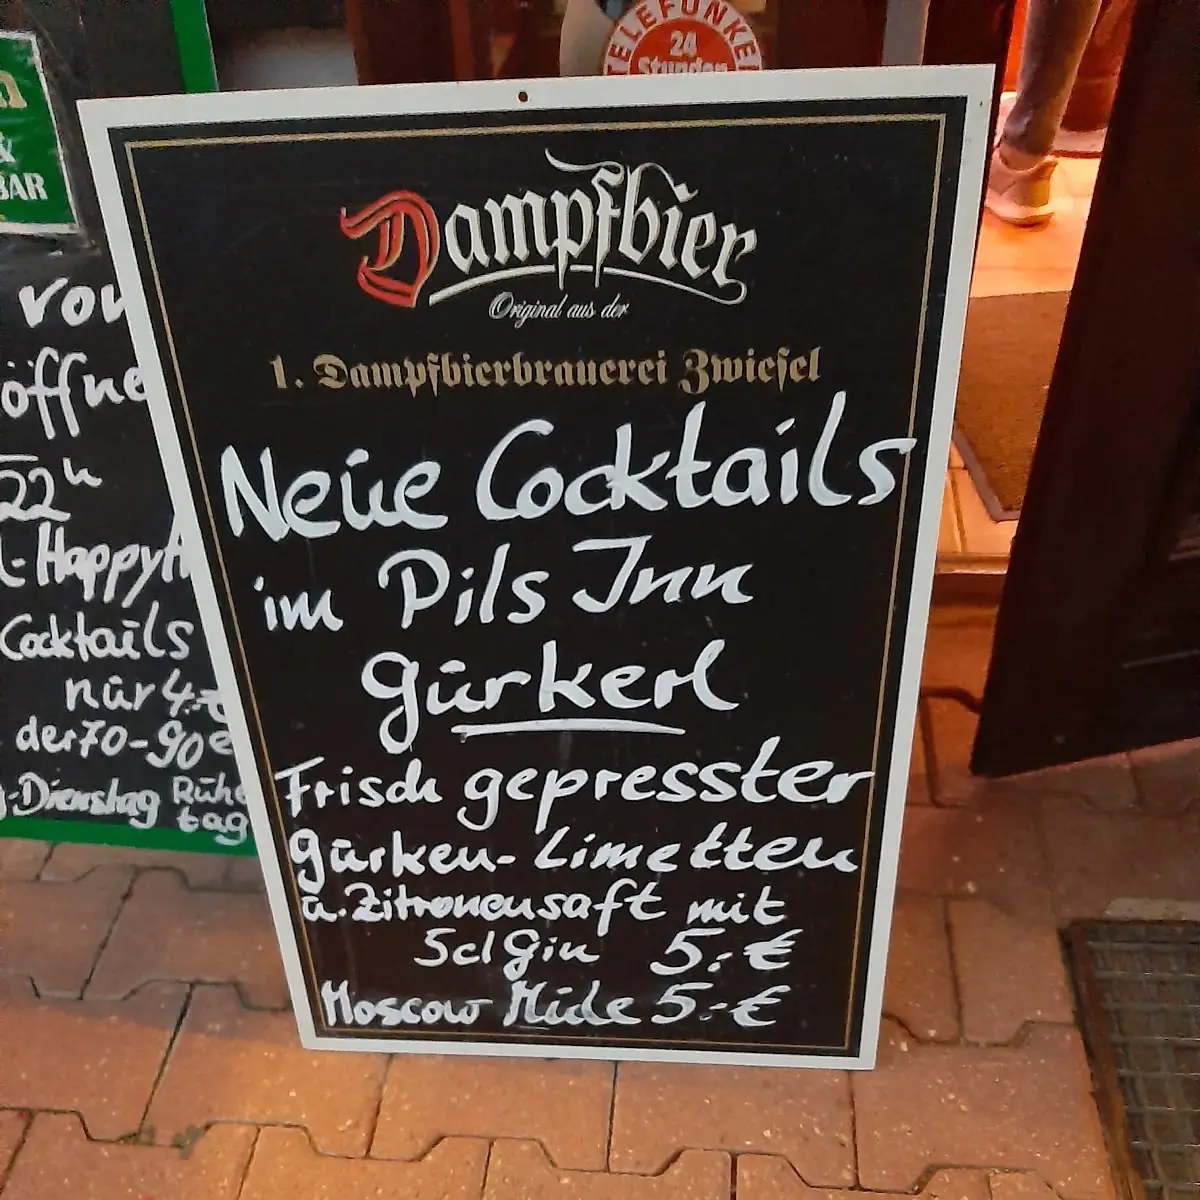 TELEFUNKEN
24
Stunden
&
BAR
Dampfbier
Original aus der
1. Dampfbierbrauerei Zwiesel
Neue Cocktails
im Pils Inn
gurkerl
Frisch gepresster
gurken- Limetten
u. Zitronensaft mit
5cl Gin 5.-€
Moscow Mule 5.-€
von
öffne
22h
Happy
Cocktails
nur 4.-€
der 70-90e
Dienstag Ruhe
tag